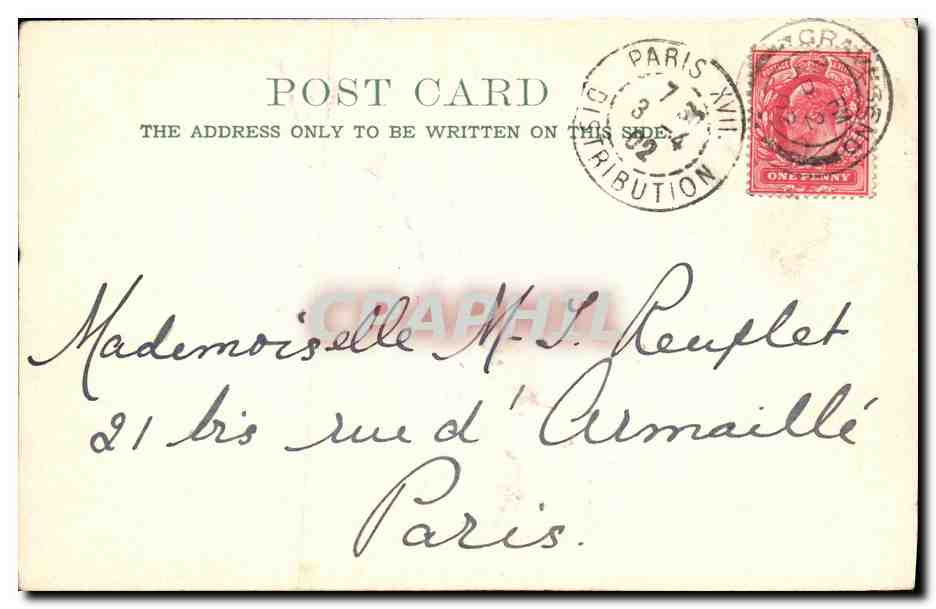 POST CARD
THE ADDRESS ONLY TO BE WRITTEN ON THIS SIDE.
PARIS XVII
DISTRIBUTION
7
3 4
02
GRAVESEND
PM
ONE PENNY
CPAPHIL
Mademoiselle M. J. Reuflet
21 bis rue d'Armaillé
Paris.